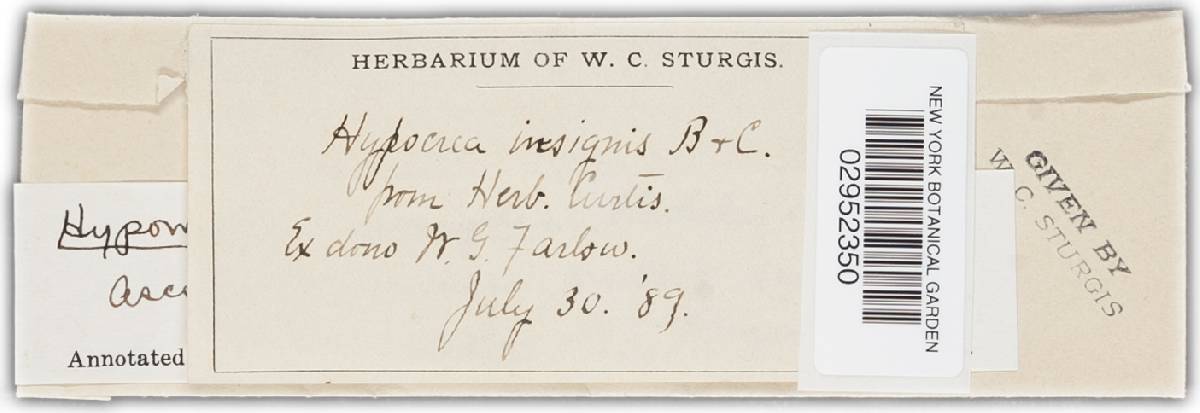 HERBARIUM OF W. C. STURGIS.
Hypocrea insignis B & C.
from Herb. Curtis.
Ex dono W. G. Farlow.
July 30. '89.
Hypom
asc
Annotated
NEW YORK BOTANICAL GARDEN
02952350
GIVEN BY
W. C. STURGIS